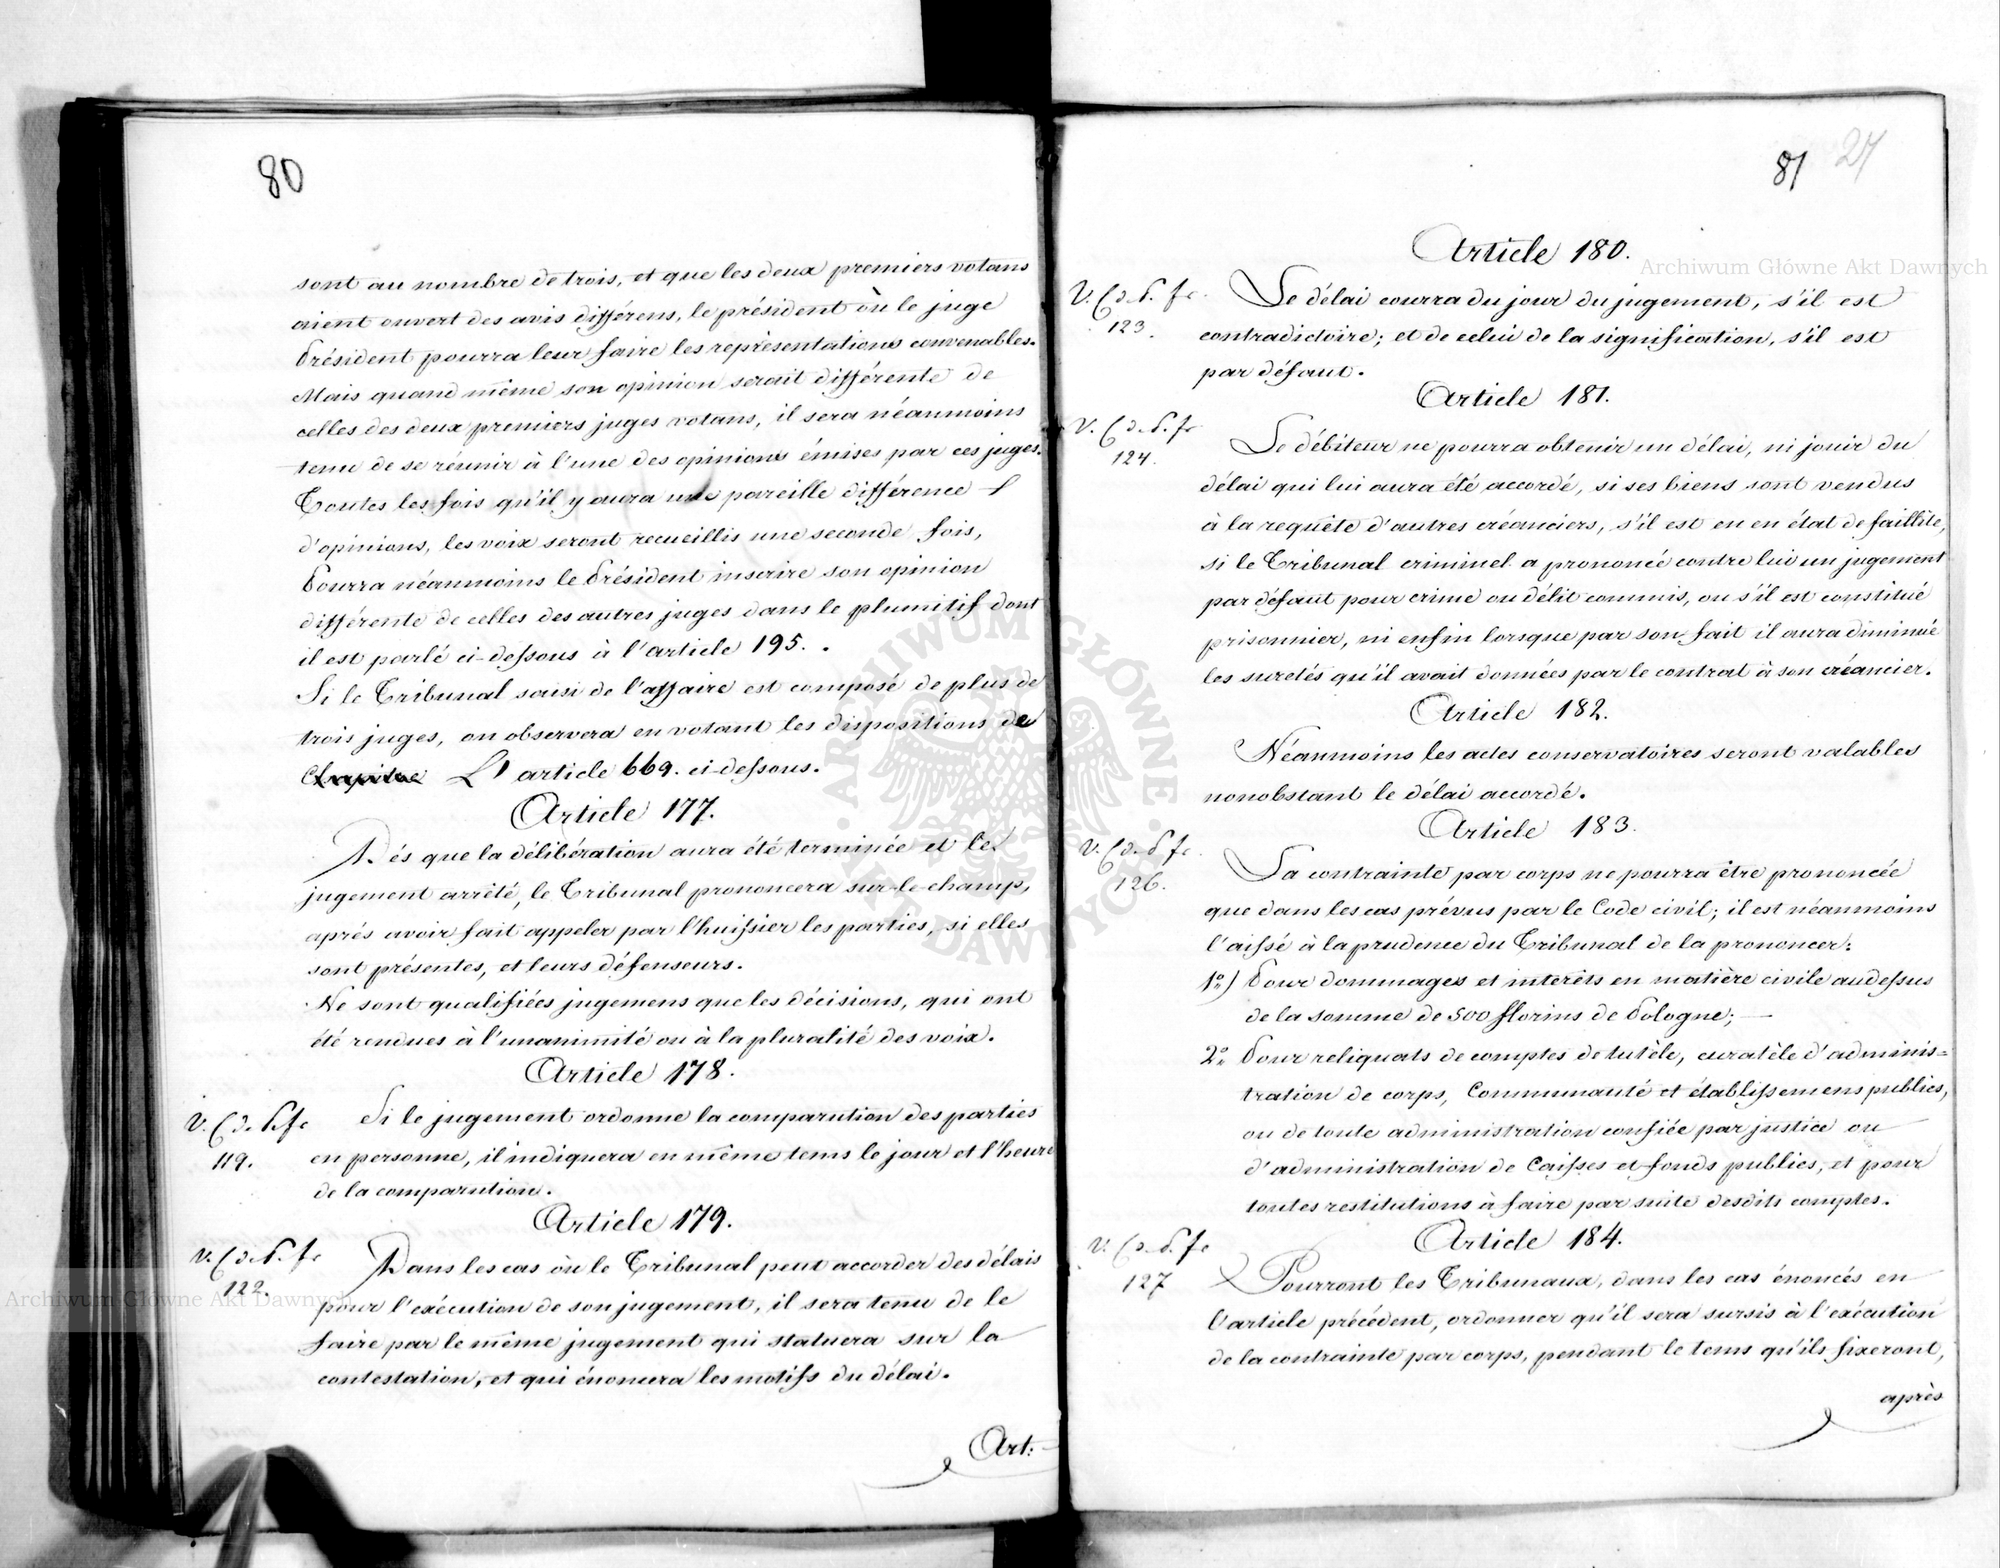 80
sont au nombre de trois, et que les deux premiers votans
aient ouvert des avis différens, le président où le juge
Président pourra leur faire les représentations convenables.
Mais quand même son opinion serait différente de
celles des deux premiers juges votans, il sera néanmoins
tenu de se réunir à l'une des opinions émises par ces juges.
Toutes les fois qu'il y aura une pareille différence
d'opinions, les voix seront recueillis une seconde fois,
Pourra néanmoins le Président inscrire son opinion
différente de celles des autres juges dans le plumitif dont
il est parlé ci-dessous à l'article 195.
Si le Tribunal saisi de l'affaire est composé de plus de
trois juges, on observera en votant les dispositions de
Chapitre L' article 669. ci-dessous.
Article 177.
Dès que la délibération aura été terminée et le
jugement arrêté, le Tribunal prononcera sur-le-champ,
après avoir fait appeler par l'huissier les parties, si elles
sont présentes, et leurs défenseurs.
Ne sont qualifiées jugemens que les décisions, qui ont
été rendues à l'unanimité ou à la pluralité des voix.
Article 178.
V. C. d. P. fr.
119.
Si le jugement ordonne la comparution des parties
en personne, il indiquera en même tems le jour et l'heure
de la comparution.
Article 179.
V. C. d. P. fr.
122.
Dans les cas où le Tribunal peut accorder des délais
pour l'exécution de son jugement, il sera tenu de le
faire par le même jugement qui statuera sur la
contestation, et qui énoncera les motifs du délai.
Art:
81
27
Article 180.
V. C. d. P. fr.
123.
Le délai courra du jour du jugement, s'il est
contradictoire; et de celui de la signification, s'il est
par défaut.
Article 181.
V. C. d. P. fr
124.
Le débiteur ne pourra obtenir un délai, ni jouir du
délai qui lui aura été accordé, si ses biens sont vendus
à la requête d'autres créanciers, s'il est en en état de faillite,
si le Tribunal criminel a prononcé contre lui un jugement
par défaut pour crime ou délit commis, ou s'il est constitué
prisonnier, ni enfin lorsque par son fait il aura diminué
les suretés qu'il avait données par le contrat à son créancier.
Article 182.
Néanmoins les actes conservatoires seront valables
nonobstant le délai accordé.
Article 183.
V. C. d. P. fr.
126.
La contrainte par corps ne pourra être prononcée
que dans les cas prévus par le Code civil; il est néanmoins
l'aissé à la prudence du Tribunal de la prononcer:
1º) Pour dommages et intérêts en matière civile audessus
de la somme de 500 florins de Pologne;
2º Pour reliquats de comptes de tutèle, curatèle d'adminis=
tration de corps, Communauté et établissemens publics,
ou de toute administration confiée par justice ou
d'administration de Caisses et fonds publics, et pour
toutes restitutions à faire par suite desdits comptes.
Article 184.
V. C. d. P. fr
127
Pourront les Tribunaux, dans les cas énoncés en
l'article précédent, ordonner qu'il sera sursis à l'exécution
de la contrainte par corps, pendant le tems qu'ils fixeront,
après
Archiwum Główne Akt Dawnych
Archiwum Główne Akt Dawnych
ARCHIWUM GŁÓWNE AKT DAWNYCH